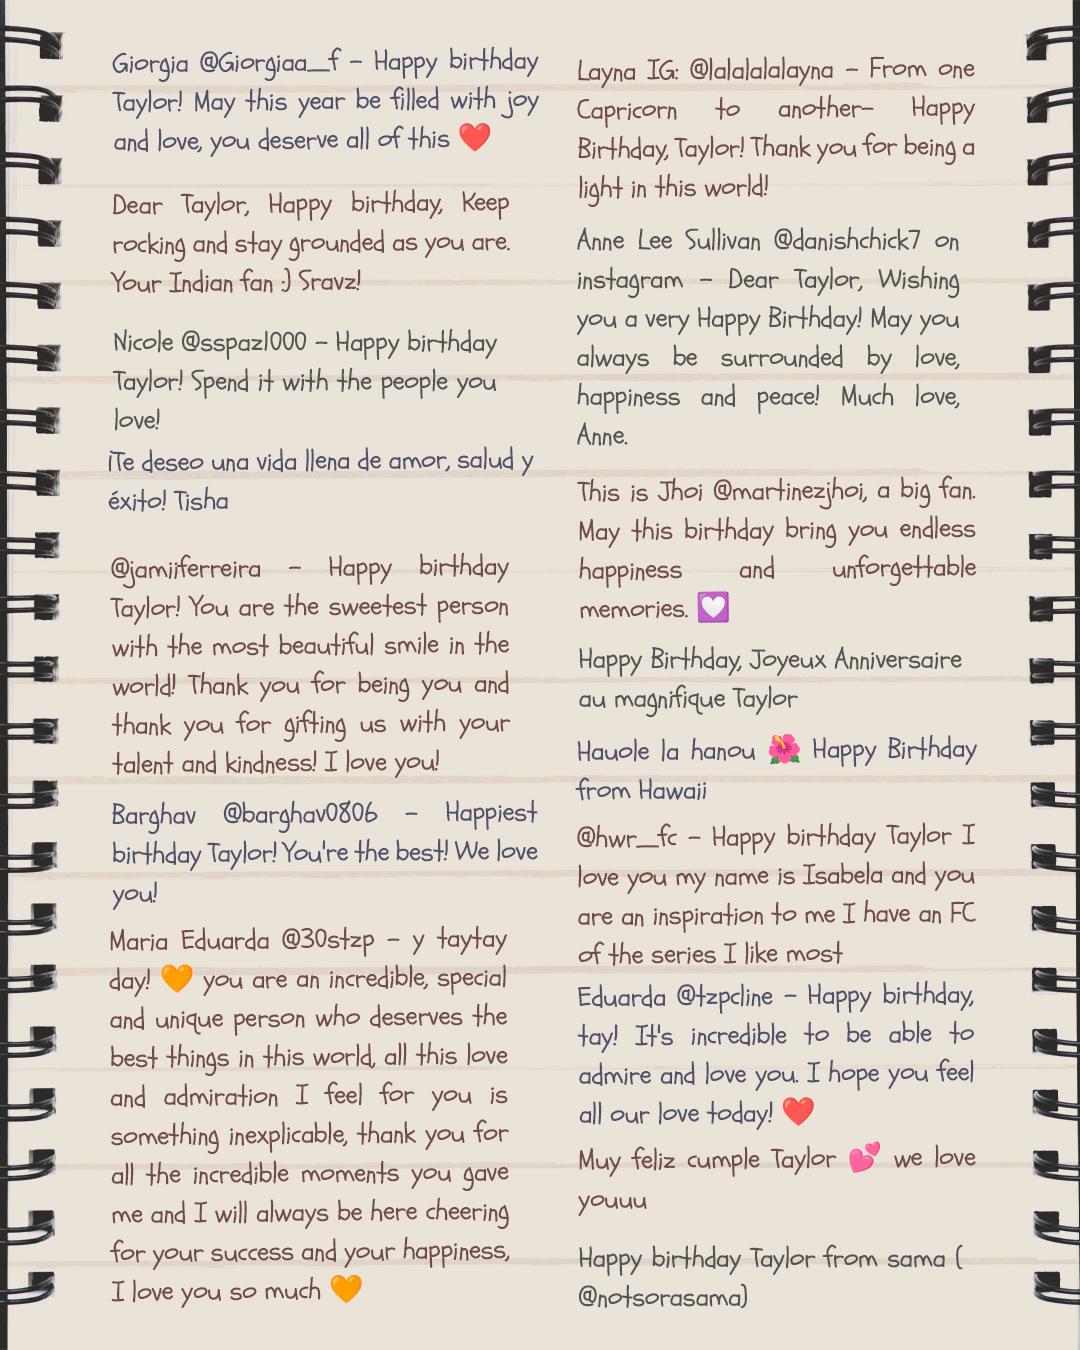 Giorgia @Giorgiaa__f - Happy birthday
Taylor! May this year be filled with joy
and love, you deserve all of this ❤️
Dear Taylor, Happy birthday, Keep
rocking and stay grounded as you are.
Your Indian fan :) Sravz!
Nicole @sspaz1000 - Happy birthday
Taylor! Spend it with the people you
love!
¡Te deseo una vida llena de amor, salud y
éxito! Tisha
@jamiiferreira - Happy birthday
Taylor! You are the sweetest person
with the most beautiful smile in the
world! Thank you for being you and
thank you for gifting us with your
talent and kindness! I love you!
Barghav @barghav0806 - Happiest
birthday Taylor! You're the best! We love
you!
Maria Eduarda @30stzp - y taytay
day! 🧡 you are an incredible, special
and unique person who deserves the
best things in this world, all this love
and admiration I feel for you is
something inexplicable, thank you for
all the incredible moments you gave
me and I will always be here cheering
for your success and your happiness,
I love you so much 🧡
Layna IG: @lalalalalayna - From one
Capricorn to another- Happy
Birthday, Taylor! Thank you for being a
light in this world!
Anne Lee Sullivan @danishchick7 on
instagram - Dear Taylor, Wishing
you a very Happy Birthday! May you
always be surrounded by love,
happiness and peace! Much love,
Anne.
This is Jhoi @martinezjhoi, a big fan.
May this birthday bring you endless
happiness and unforgettable
memories. 💟
Happy Birthday, Joyeux Anniversaire
au magnifique Taylor
Hauole la hanou 🌺 Happy Birthday
from Hawaii
@hwr__fc - Happy birthday Taylor I
love you my name is Isabela and you
are an inspiration to me I have an FC
of the series I like most
Eduarda @tzpcline - Happy birthday,
tay! It's incredible to be able to
admire and love you. I hope you feel
all our love today! ❤️
Muy feliz cumple Taylor 💕 we love
youuu
Happy birthday Taylor from sama (
@notsorasama)